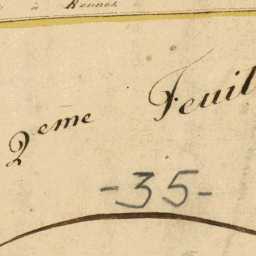 à Rennes
2eme Feuil
-35-